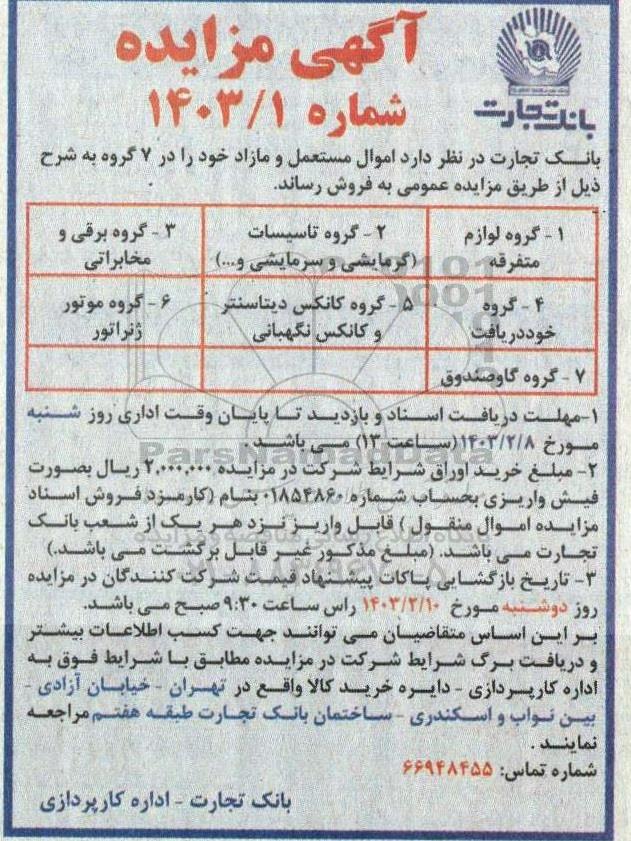 آگهی مزایده
شماره ۱۴۰۳/۱
بانک تجارت
بانک تجارت در نظر دارد اموال مستعمل و مازاد خود را در ۷ گروه به شرح
ذیل از طریق مزایده عمومی به فروش رساند.
۱- گروه لوازم متفرقه
۲- گروه تاسیسات (گرمایشی و سرمایشی و...)
۳- گروه برقی و مخابراتی
۴- گروه خوددریافت
۵- گروه کانکس دیتاسنتر و کانکس نگهبانی
۶- گروه موتور ژنراتور
۷- گروه گاوصندوق
۱-مهلت دریافت اسناد و بازدید تا پایان وقت اداری روز شنبه
مورخ ۱۴۰۳/۲/۸(ساعت ۱۳) می باشد.
۲- مبلغ خرید اوراق شرایط شرکت در مزایده ۲,۰۰۰,۰۰۰ ریال بصورت
فیش واریزی بحساب شماره ۰۱۸۵۴۸۶۰ بنام (کارمزد فروش اسناد
مزایده اموال منقول) قابل واریز نزد هر یک از شعب بانک
تجارت می باشد. (مبلغ مذکور غیر قابل برگشت می باشد.)
۳- تاریخ بازگشایی پاکات پیشنهاد قیمت شرکت کنندگان در مزایده
روز دوشنبه مورخ ۱۴۰۳/۲/۱۰ راس ساعت ۹:۳۰ صبح می باشد.
بر این اساس متقاضیان می توانند جهت کسب اطلاعات بیشتر
و دریافت برگ شرایط شرکت در مزایده مطابق با شرایط فوق به
اداره کارپردازی - دایره خرید کالا واقع در تهران - خیابان آزادی -
بین نواب و اسکندری - ساختمان بانک تجارت طبقه هفتم مراجعه
نمایند.
شماره تماس: ۶۶۹۴۸۴۵۵
بانک تجارت - اداره کارپردازی
ParsNamadData